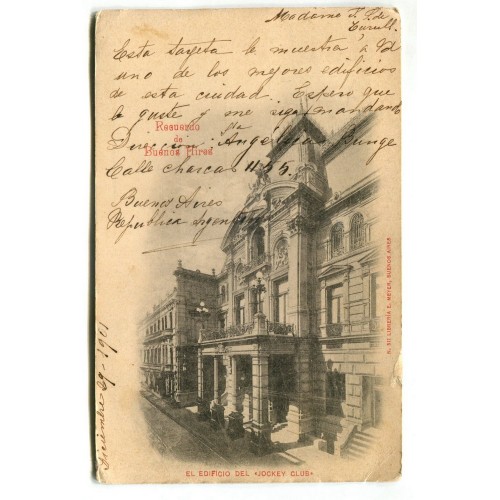 Madame J. J. de
Turull.
Esta targeta le muestra á Vd
uno de los mejores edificios
de esta ciudad. Espero que
le guste y me siga mandando
Recuerdo
de
Buenos Aires
Dirección: Sta Angélyca Bunge
Calle charcas 1155.
Buenos Aires
Republica Argentina
Diciembre 29-1901
EL EDIFICIO DEL «JOCKEY CLUB»
LIBRERIA E. MEYER, BUENOS AIRES